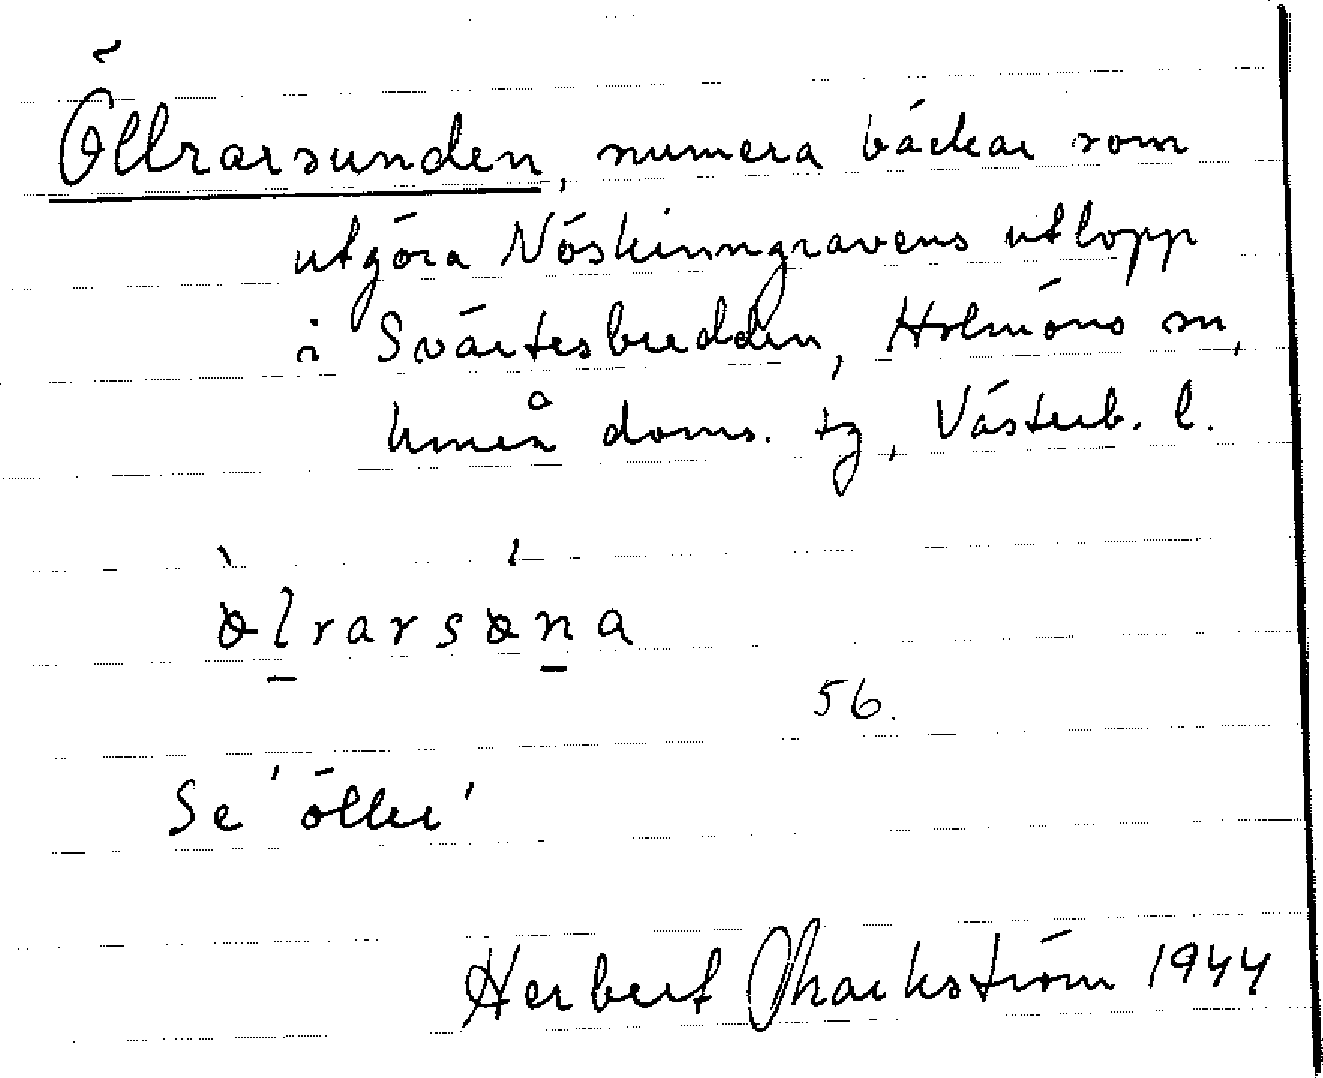 Öllrarsunden, numera bäckar som
utgöra Nöskinngravens utlopp
i Svärtesbredden, Holmöns sn,
Umeå doms. tg, Västerb. l.
56.
Se 'öller'
Herbert Markström 1944